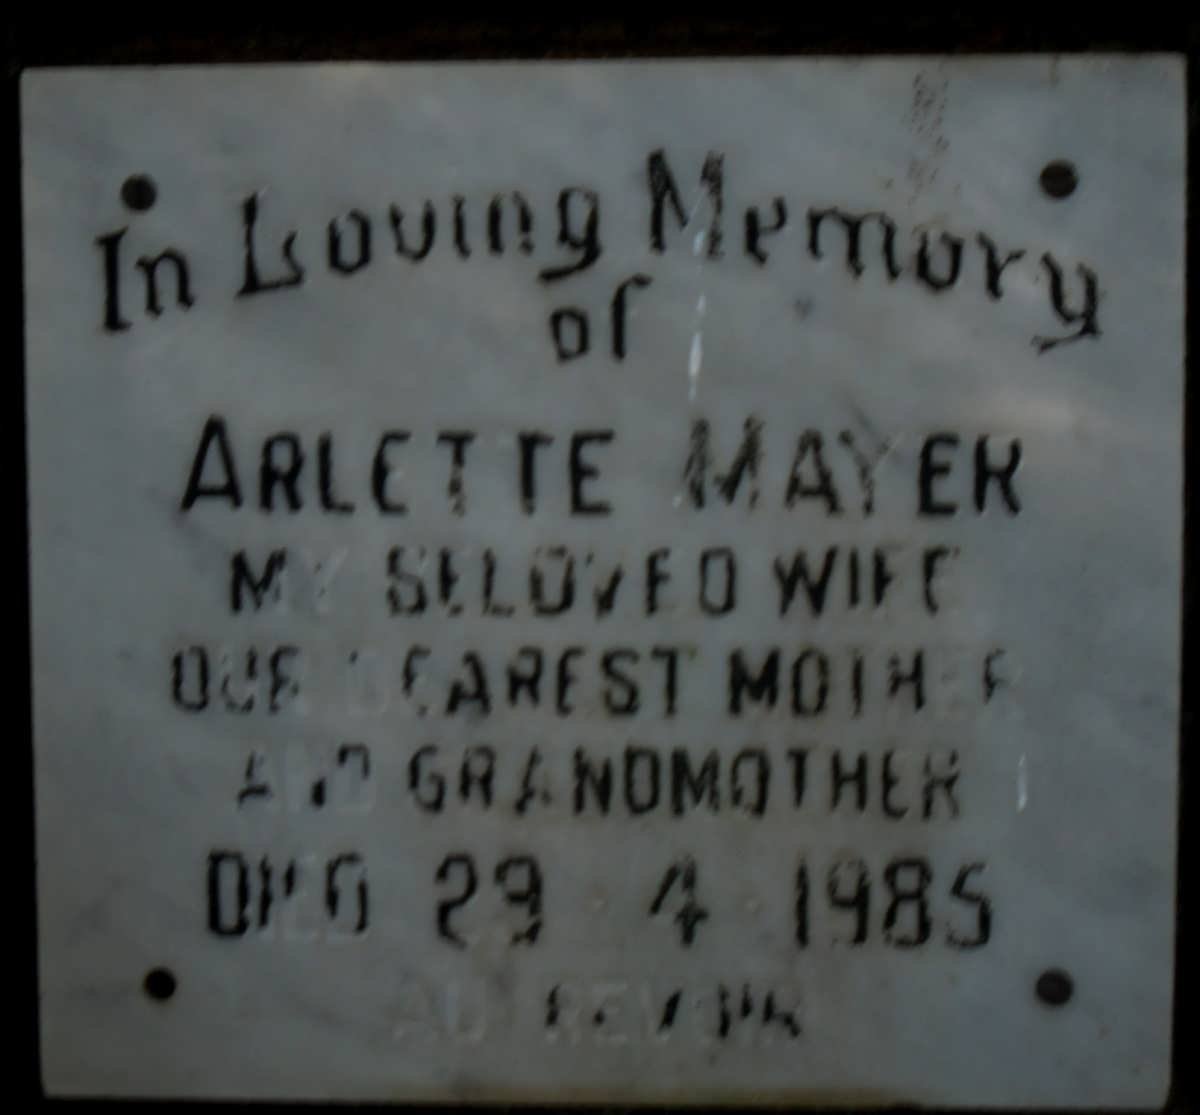 In Loving Memory
of
ARLETTE MAYER
MY BELOVED WIFE
OUR DEAREST MOTHER
AND GRANDMOTHER
DIED 29 · 4 · 1985
AU REVOIR